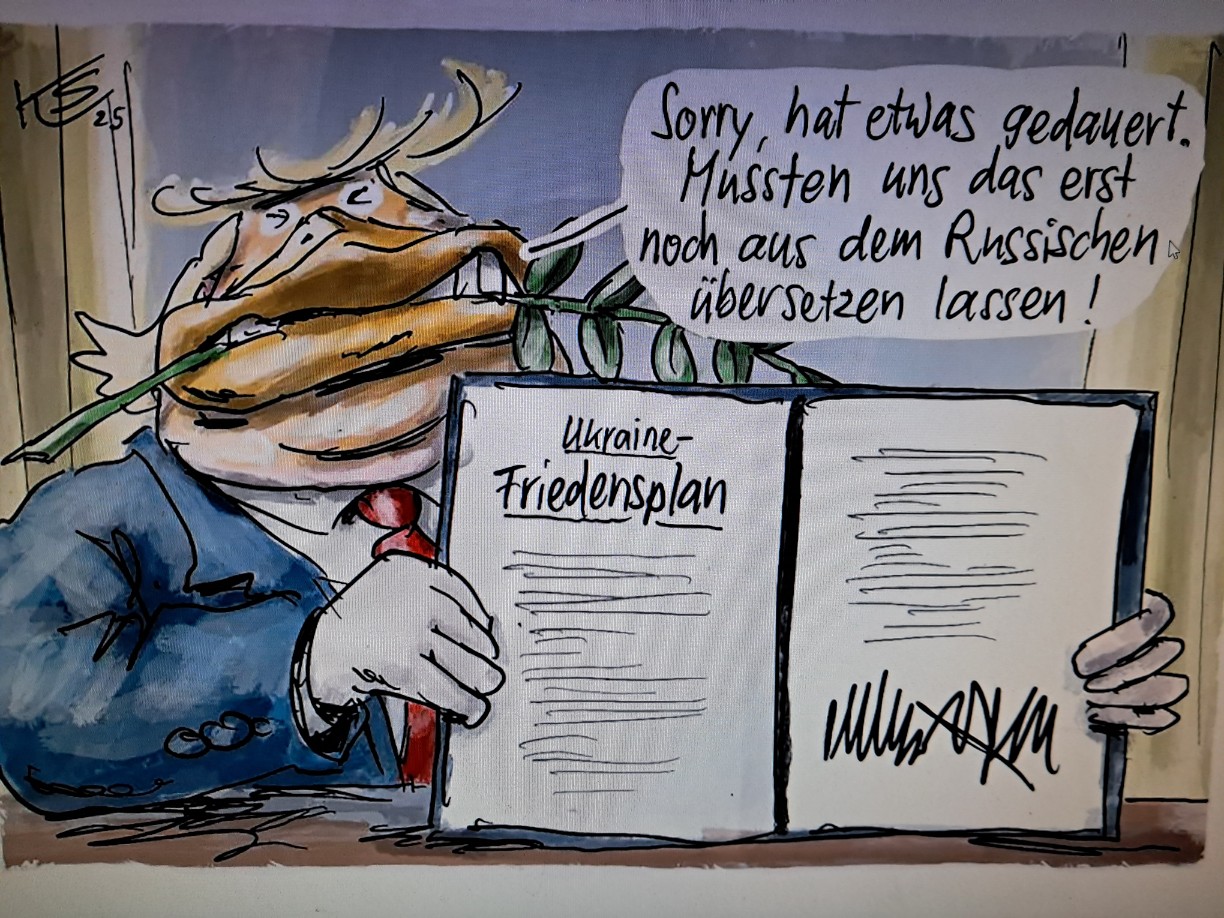 KS
25
Sorry, hat etwas gedauert.
Mussten uns das erst
noch aus dem Russischen
übersetzen lassen!
Ukraine-
Friedensplan